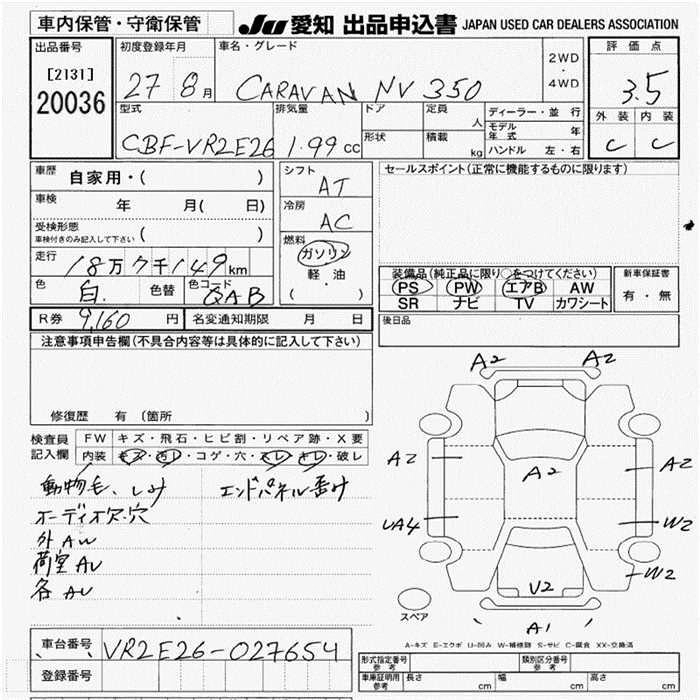 車内保管・守衛保管
JU 愛知 出品申込書 JAPAN USED CAR DEALERS ASSOCIATION
出品番号
[2131]
20036
初度登録年月
27 8月
車名・グレード
CARAVAN NV350
2WD
・
4WD
評価点
3.5
外装 内装
C C
型式
CBF-VR2E26
排気量
1.99cc
ドア
形状
定員 人
積載 kg
ディーラー・並行
モデル年式 年
ハンドル 左・右
車歴 自家用・( )
車検 年 月( 日)
受検形態
車検付きのみ記入して下さい ( )
走行 18万7千149km
色 白. 色替 色コード QAB
R券 9,160 円 名変通知期限 月 日
シフト
AT
冷房
AC
燃料
ガソリン
軽・油
( )
セールスポイント(正常に機能するものに限ります)
装備品(純正品に限り○をつけてください)
PS PW エアB AW
SR ナビ TV カワシート
新車保証書
有・無
後日品
注意事項申告欄(不具合内容等は具体的に記入して下さい)
修復歴 有 (箇所 )
検査員記入欄
FW キズ・飛石・ヒビ割・リペア跡・X要
内装 キズ・汚レ・コゲ・穴・スレ・キレ・破レ
動物毛、しみ
エンドパネル歪け
オーディオ欠.穴
外AW
荷室AU
各AU
A2 A2
A2 A2 A2
UA4 W2
W2
U2
A1
スペア
A-キズ E-エクボ U-凹み W-補修跡 S-サビ C-腐食 XX-交換済
車台番号 VR2E26-027654
登録番号
形式指定番号 参考
類別区分番号 参考
車庫証明用 参考 長さ cm 幅 cm 高さ cm